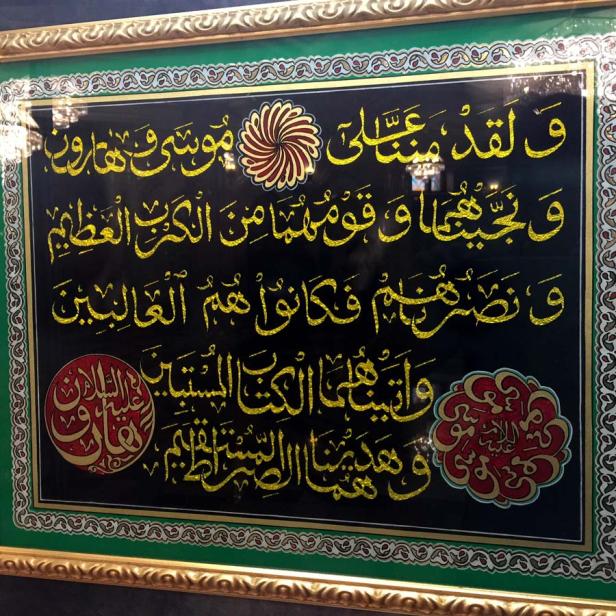 وَلَقَدْ مَنَنَّا عَلَىٰ مُوسَىٰ وَهَارُونَ
وَنَجَّيْنَاهُمَا وَقَوْمَهُمَا مِنَ الْكَرْبِ الْعَظِيمِ
وَنَصَرْنَاهُمْ فَكَانُوا هُمُ الْغَالِبِينَ
وَآتَيْنَاهُمَا الْكِتَابَ الْمُسْتَبِينَ
وَهَدَيْنَاهُمَا الصِّرَاطَ الْمُسْتَقِيمَ
موسى عليه السلام
هارون عليه السلام